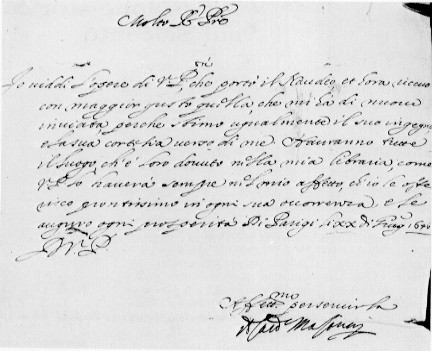 Molto R. Pre
Io viddi l'opere di V. P. che portò il Naudeo, et hora ricevo
con maggior gusto quella che mi hà di nuovo
inviata, perche stimo ugualmente il suo ingegno
e la sua cortesia verso di me. Havranno tutte
il luogo, ch'è loro dovuto nella mia libraria, come
V. P. haverà sempre nel mio affetto, ch'io le offe
risco prontissimo in ogni sua occorrenza e le
auguro ogni prosperità Di Parigi li xx di
D. V. P.
Affett.mo per servirla
Il Card. Mazarini